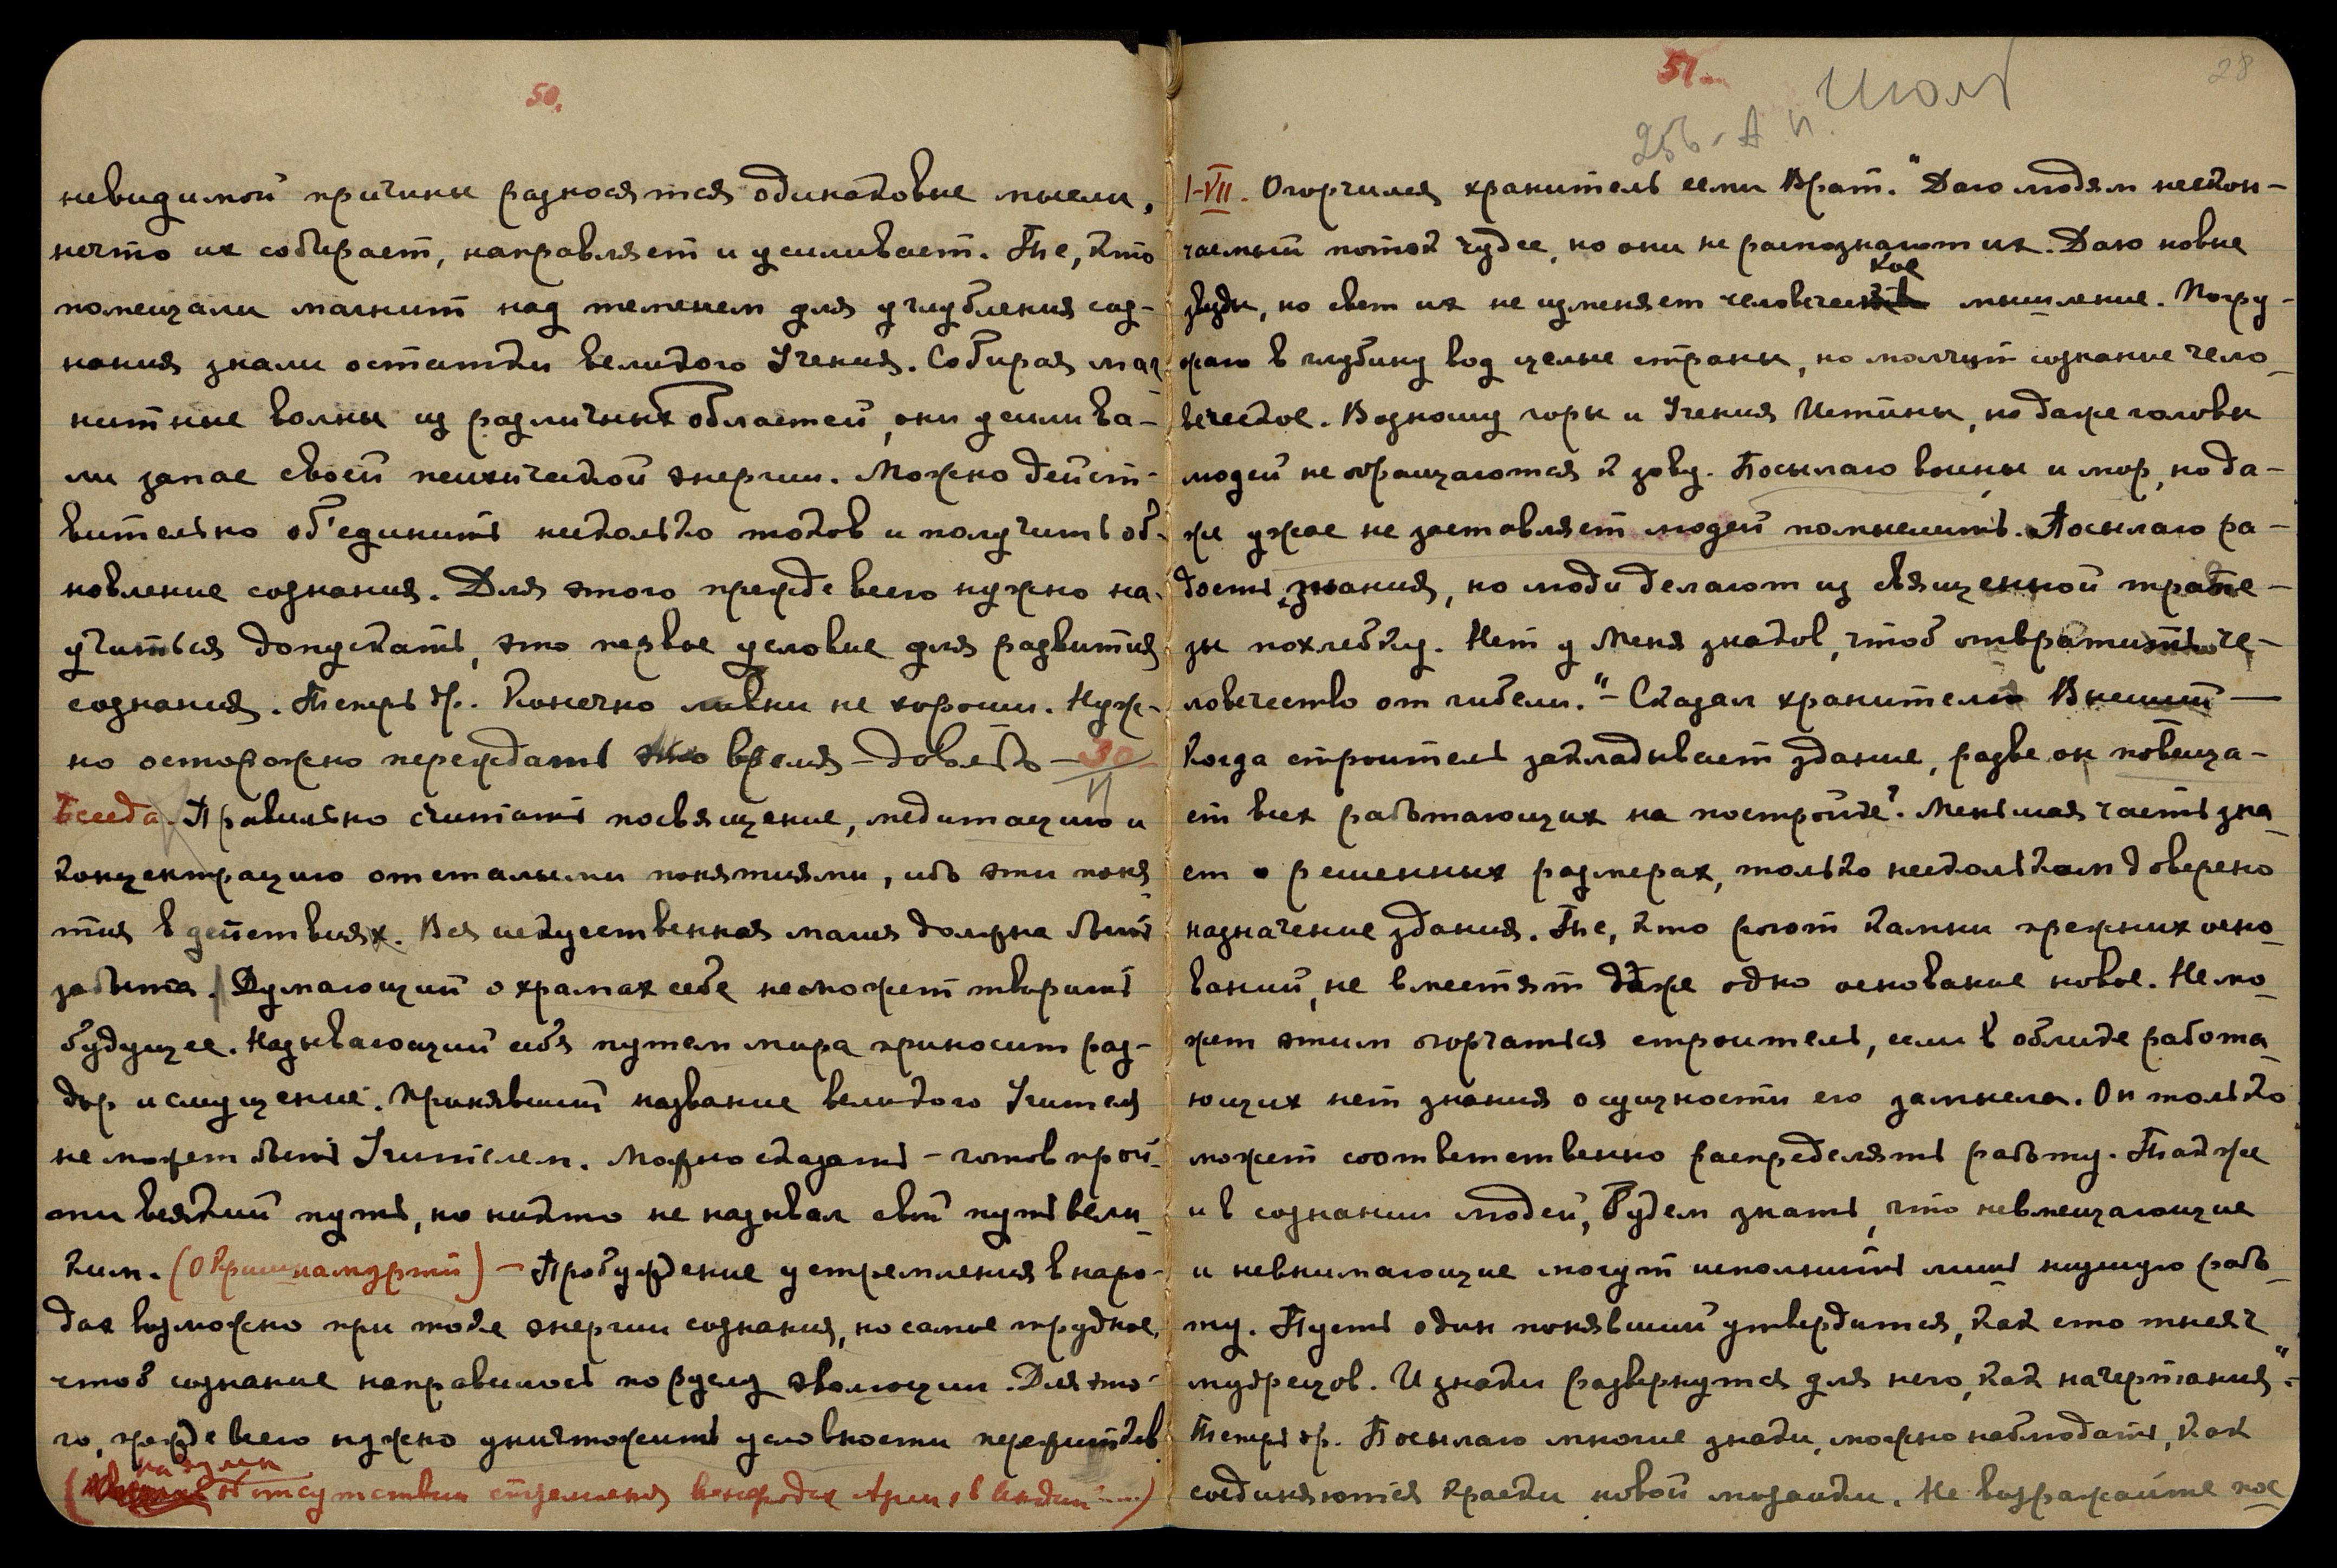 50.
невидимой причины разносятся одинаковые мысли,
нечто их собирает, направляет и усиливает. Те, кто
помещали магнит над теменем для углубления соз-
нания знали остатки великого Учения. Собирая маг-
нитные волны из различных областей, они усилива-
ли запас своей психической энергии. Можно дейст-
вительно об'единить несколько токов и получить об-
новление сознания. Для этого прежде всего нужно на-
учиться допускать, это первое условие для развития
сознания. Теперь др. Конечно ливни не хороши. Нуж-
но осторожно переждать это время – довольно – 30
Беседа. Правильно считать посвящение, медитацию и
концентрацию отсталыми понятиями, ибо эти поня-
тия в действиях. Вся искусственная магия должна быть
забыта. Думающий о храмах себе не может творить
будущее. Называющий себя путем мира приносит раз-
дор и смущение. Принявший название великого Учителя
не может быть Учителем. Можно сказать – готов прой-
ти всякий путь, но никто не называл свой путь вели-
ким. (О Кришнамурти) – Пробуждение устремления в наро-
дах возможно при токе энергии сознания, но самое трудное,
чтоб сознание направилось по руслу эволюции. Для это-
го, прежде всего нужно уничтожить условности пережитков
на думы
(об отсутствии стремления в народах Азии и в Индии ....)
51.
28
Июль
256. А И.
1–VII. Огорчился хранитель семи Врат. "Даю людям нескон-
чаемый поток чудес, но они не распознают их. Даю новые
звезды, но свет их не изменяет человеческое мышление. Погру-
жаю в глубину вод целые страны, но молчит сознание чело-
веческое. Возношу горы и Учения Истины, но даже головы
людей не обращаются к зову. Посылаю войны и мор, но да-
же ужас не заставляет людей помыслить. Посылаю ра-
дость знания, но люди делают из священной трапе-
зы похлебку. Нет у Меня знаков, чтоб отвратить че-
ловечество от гибели." – Сказал хранителю Высший –
Когда строитель закладывает здание, разве он повеща-
ет всех работающих на постройке? Меньшая часть зна-
ет о решенных размерах, только нескольким доверено
назначение здания. Те, кто роют камни прежних осно-
ваний, не вместят даже одно основание новое. Не мо-
жет этим огорчаться строитель, если в облике работа-
ющих нет знания о сущности его замысла. Он только
может соответственно распределять работу. Так же
и в сознании людей, Будем знать, что невмещающие
и невнимающие могут исполнить лишь низшую рабо-
ту. Пусть один понявший утвердится, как сто тысяч
мудрецов. И знаки развернутся для него, как начертания".
Теперь др. Посылаю многие знаки, можно наблюдать, как
соединяются краски новой мозаики. Не возражайте пос